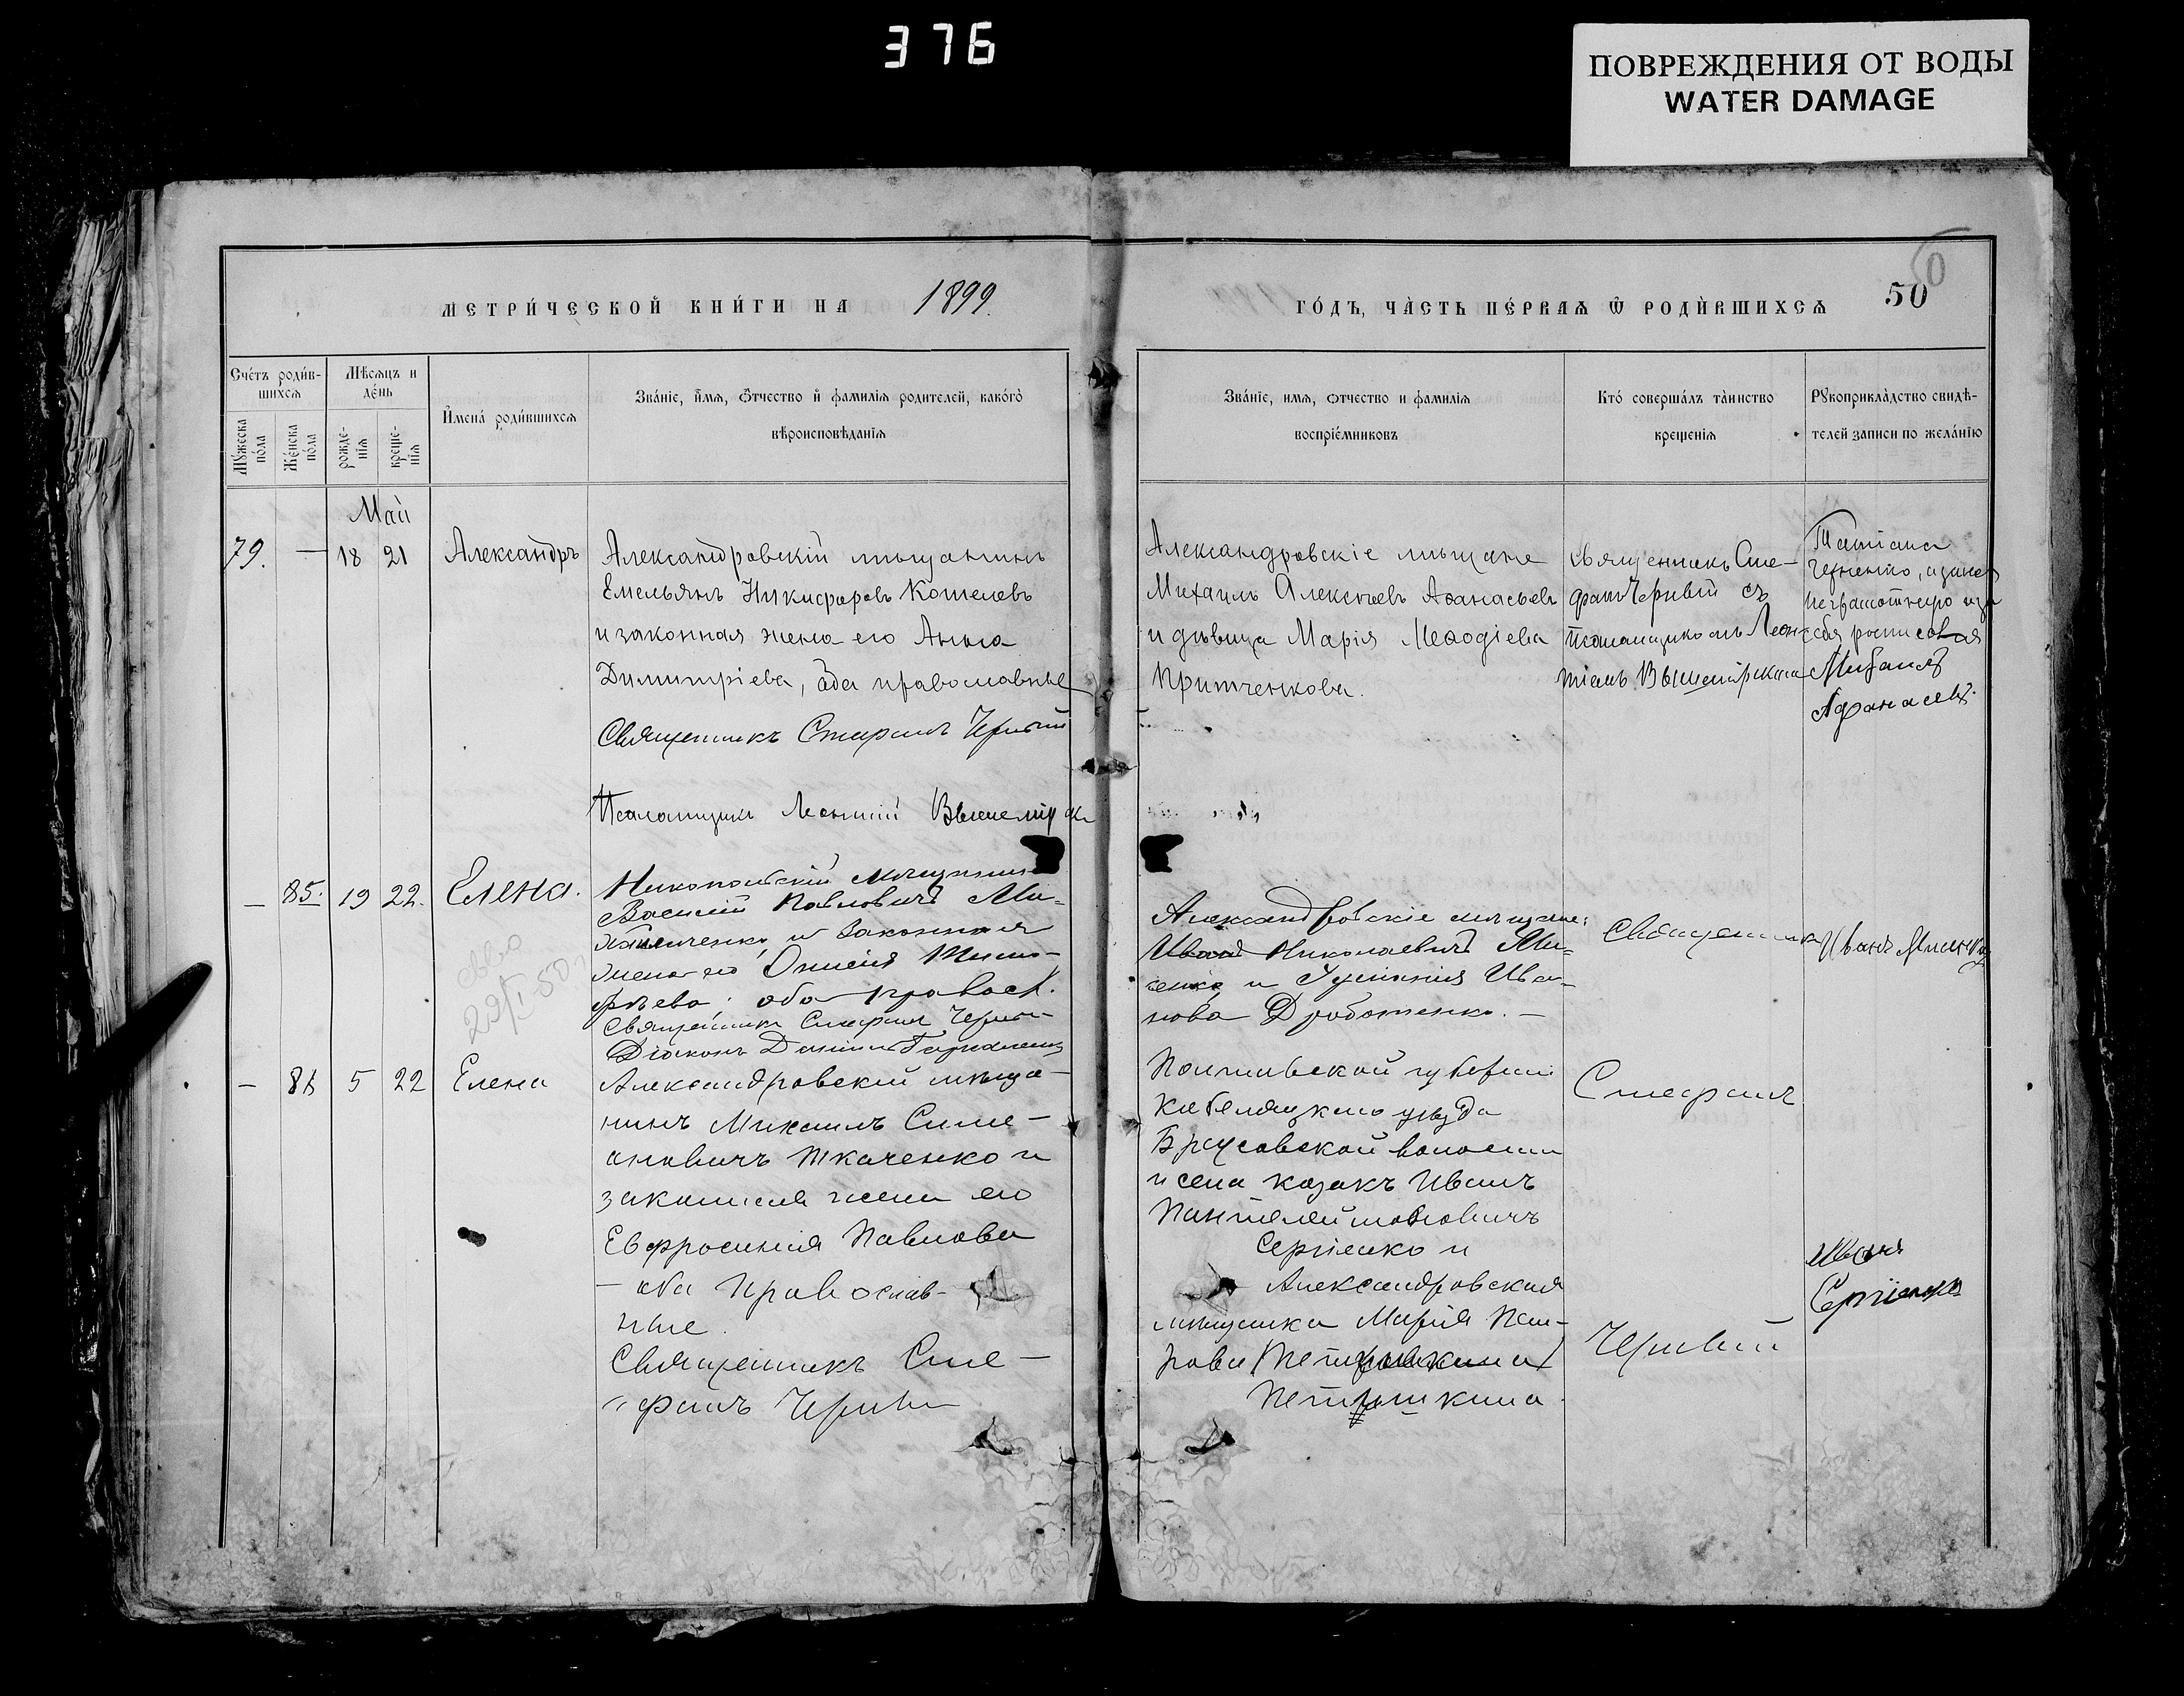 376
ПОВРЕЖДЕНИЯ ОТ ВОДЫ
WATER DAMAGE
МЕТРИ́ЧЕСКОЙ КНИ́ГИ НА 1899.
ГО́ДЪ, ЧА̀СТЬ ПЕ́РВАѦ Ѿ РОДИ́ВШИХСѦ
50
50
Сче́тъ роди́в-
шихсѧ
Мѣсѧцъ и
де́нь
Мꙋжеска по́ла
Же́нска по́ла
рожде-
нїѧ
креще-
нїѧ
И҆мена́ роди́вшихсѧ
Зва́нїе, и҆́мѧ, ѻ҆́тчество и҆ фамилїѧ родителей, како́гѡ
вѣроисповѣданїѧ
Зва́нїе, имѧ, ѻтчество и фамилїѧ
воспрїе́мниковъ
Кто́ соверша́лъ та̀инство
крещенїѧ
Рꙋкоприкла̀дство свидѣ-
телей записи по жела́нїю
Май
79. — 18 21 Александръ
Александровскій мѣщанинъ
Емельянъ Никифоровъ Кошелевъ
и законная жена его Анна
Димитріева, оба православные
Священникъ Стефанъ Черный
Псаломщикъ Леонтій Вышемірск
Александровскіе мѣщане
Михаилъ Алексѣевъ Аѳанасьевъ
и дѣвица Марія Меѳодіева
Притченкова.
Священникъ Сте-
фанъ Черный съ
псаломщикомъ Леон-
тіемъ Вышемірскимъ
неграмотную и за
себя росписался
Михаилъ
Афанасьевъ.
— 85. 19 22. Елена.
Никопольскій мѣщанинъ
Василій Павловичъ Ми-
и законная
жена его Онисія Тимо-
фѣева; оба правосл.
Священникъ Стефанъ Черный
Діаконъ Даніилъ
29/I 50
Александровскіе мѣщане:
Иванъ Николаевичъ Ми-
ненко и Ива-
нова Дроботенко. —
Священникъ
Иванъ Миненко
— 86 5 22 Елена
Александровскій мѣща-
нинъ Михаилъ Симе-
оновичъ Ткаченко и
законная жена его
Евфросинія Павлова
— оба православ-
ные.
Священникъ Сте-
фанъ Черный
Полтавской губерніи
Кобеляцкаго уѣзда
Бригадовской волости
и села козакъ Иванъ
Пантелеймоновичъ
Сергіенко и
Александровская
мѣщанка Марія Пет-
рова (Петрошкина)
Петрошкина.
Стефанъ
Черный
Иванъ
Сергіенко